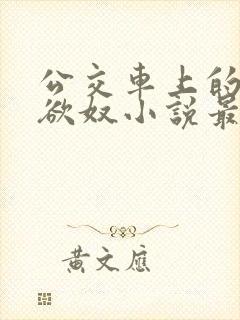 公交車上的
欲奴小説最
黃文應